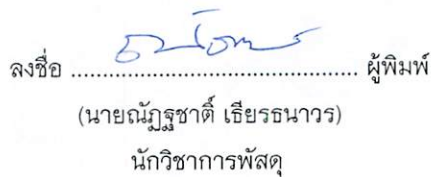 ลงชื่อ ................................................ ผู้พิมพ์
(นายณัฏฐชาติ์ เธียรธนาวร)
นักวิชาการพัสดุ